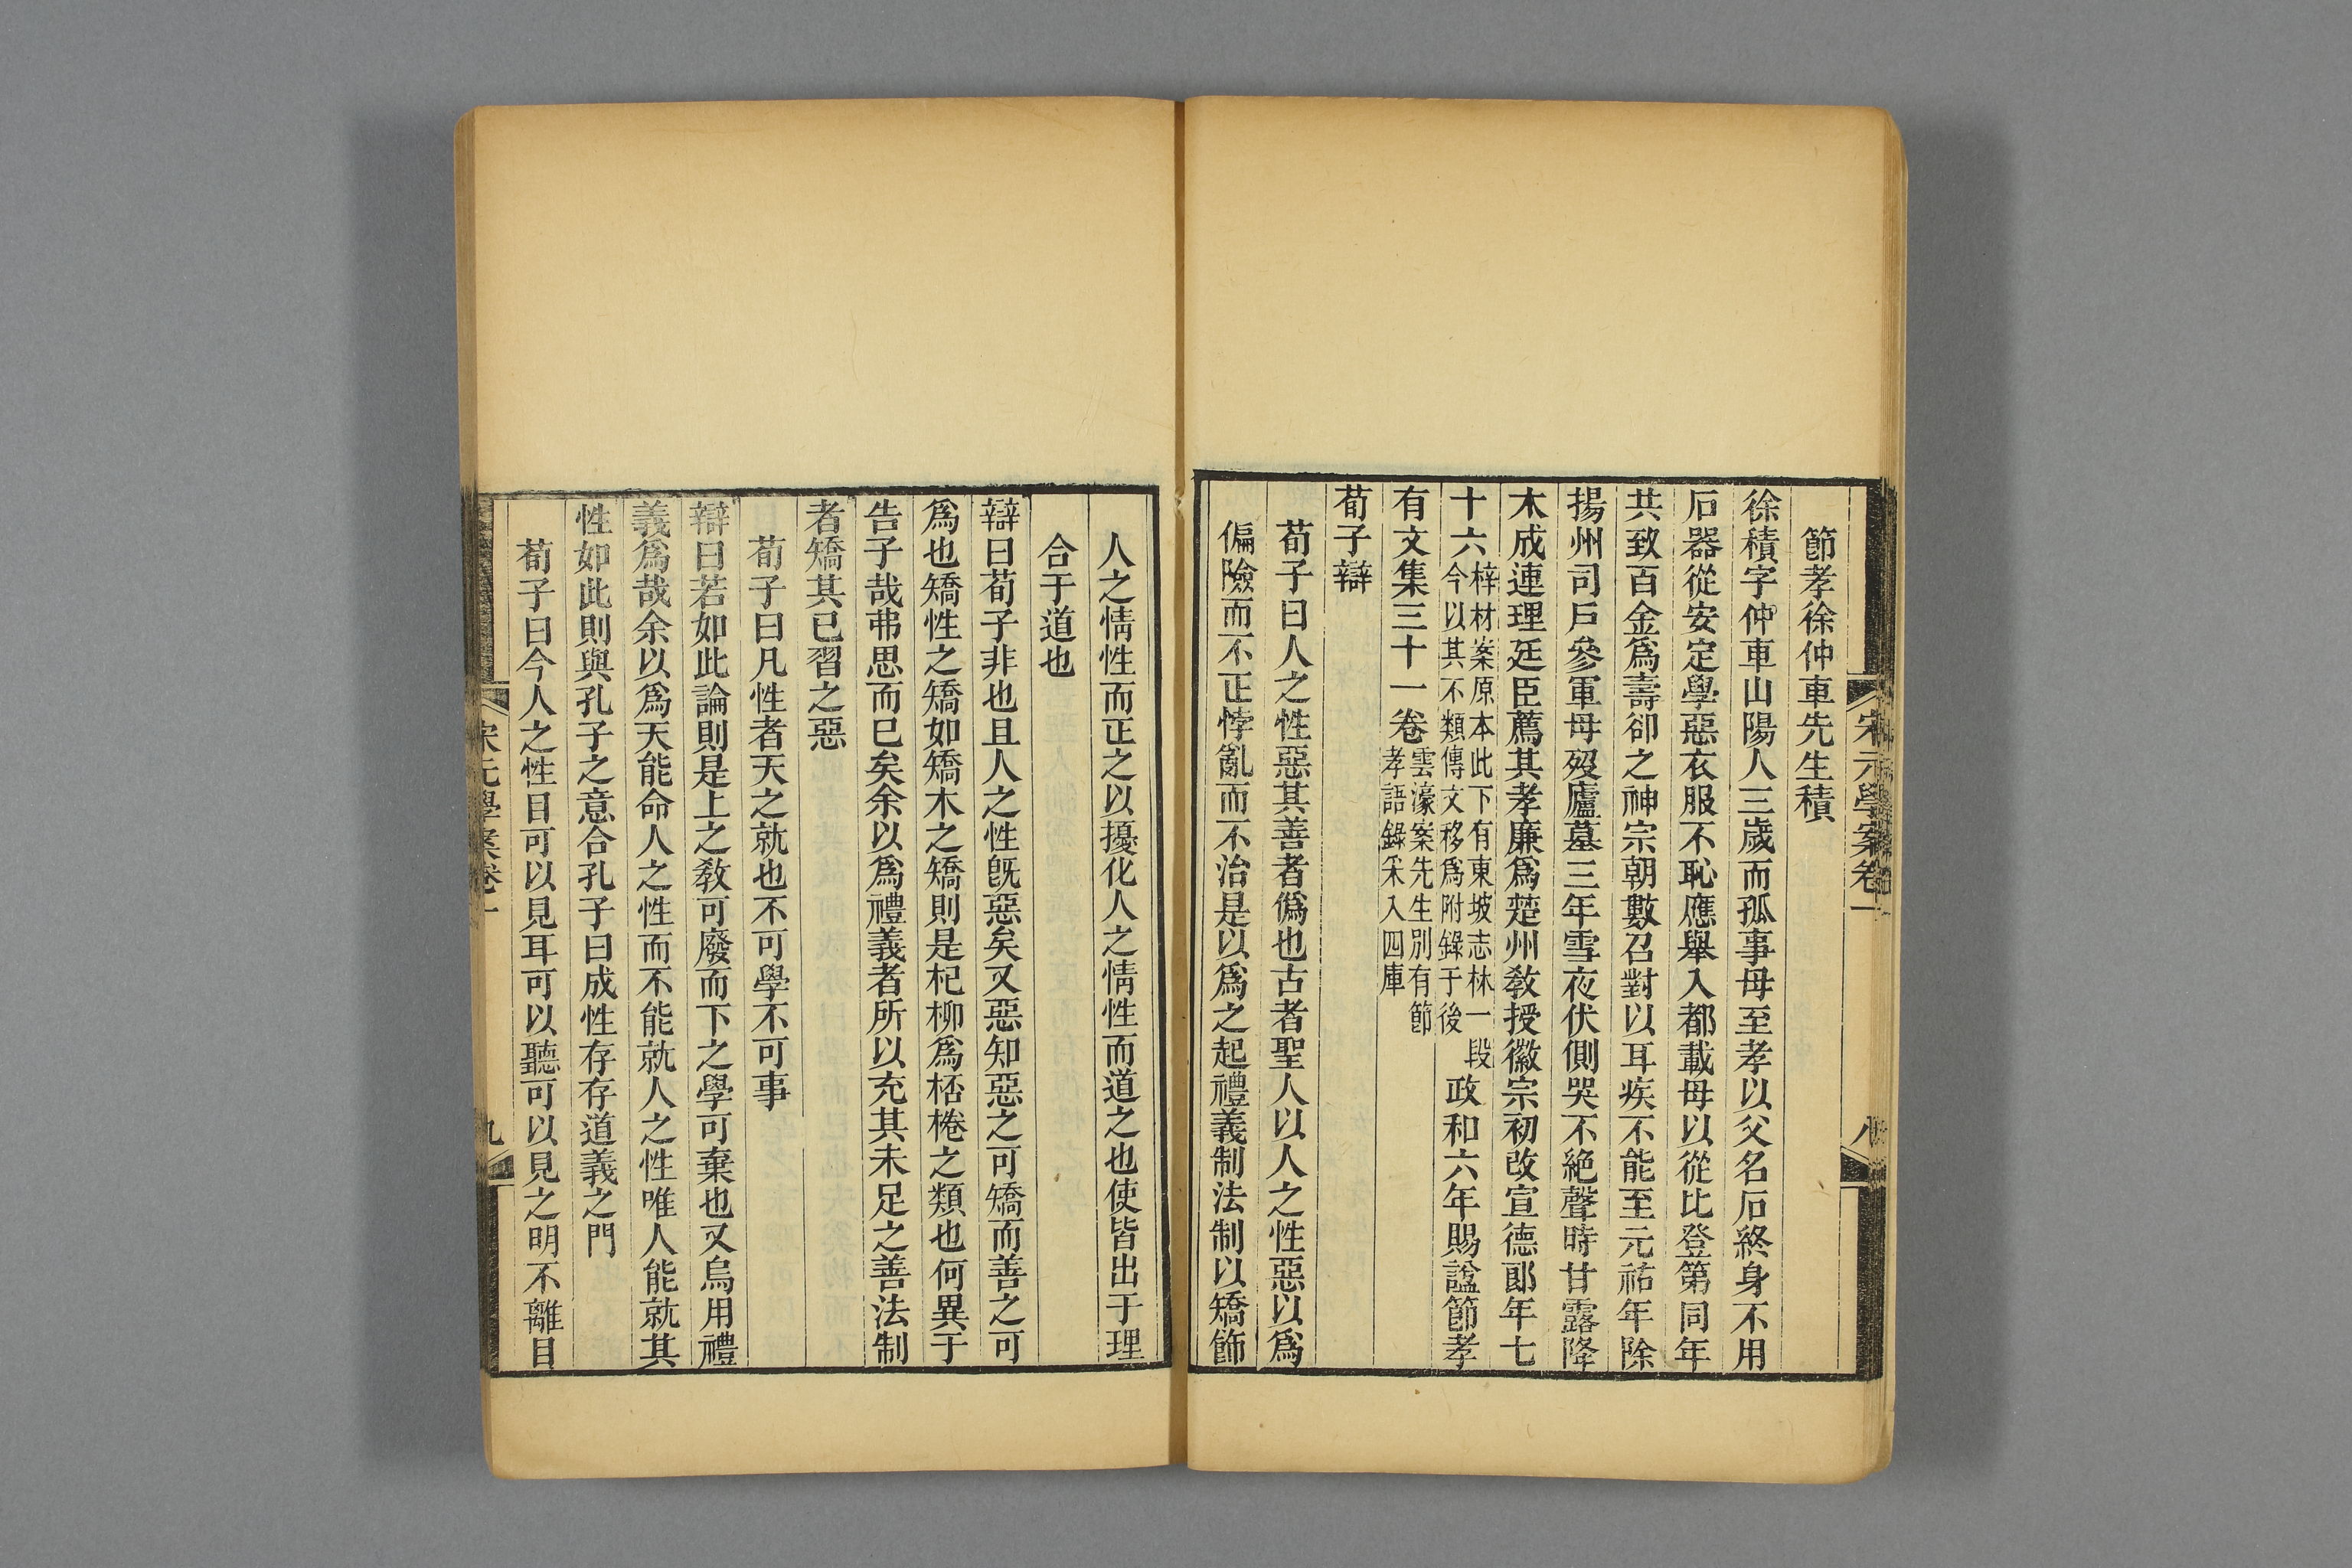 宋元學案卷一
八
節孝徐仲車先生積
徐積字仲車山陽人三歲而孤事母至孝以父名石終身不用
石器從安定學惡衣服不恥應舉入都載母以從比登第同年
共致百金爲壽卻之神宗朝數召對以耳疾不能至元祐年除
揚州司戶參軍母歿廬墓三年雪夜伏側哭不絕聲時甘露降
木成連理廷臣薦其孝廉爲楚州敎授徽宗初改宣德郞年七
十六梓材案原本此下有東坡志林一段今以其不類傳文移爲附錄于後政和六年賜諡節孝
有文集三十一卷雲濠案先生別有節孝語錄采入四庫
荀子辯
荀子曰人之性惡其善者僞也古者聖人以人之性惡以爲
偏險而不正悖亂而不治是以爲之起禮義制法制以矯飾
人之情性而正之以擾化人之情性而道之也使皆出于理
合于道也
辯曰荀子非也且人之性旣惡矣又惡知惡之可矯而善之可
爲也矯性之矯如矯木之矯則是杞柳爲桮棬之類也何異于
告子哉弗思而已矣余以爲禮義者所以充其未足之善法制
者矯其已習之惡
荀子曰凡性者天之就也不可學不可事
辯曰若如此論則是上之敎可廢而下之學可棄也又烏用禮
義爲哉余以爲天能命人之性而不能就人之性唯人能就其
性如此則與孔子之意合孔子曰成性存存道義之門
荀子曰今人之性目可以見耳可以聽可以見之明不離目
宋元學案卷一
九